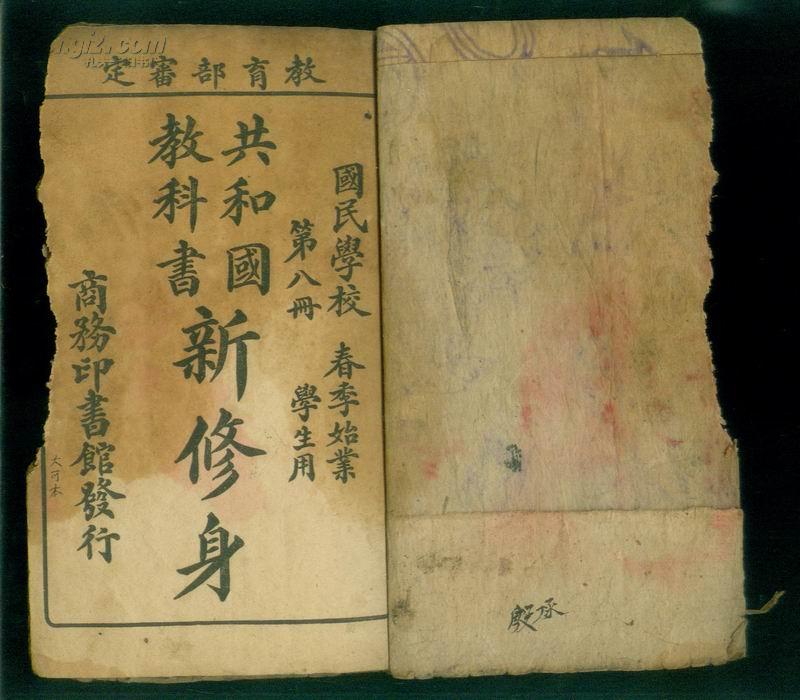 教育部審定
國民學校 春季始業
第八冊 學生用
共和國
教科書
新修身
商務印書館發行
大可本